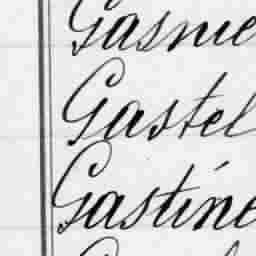 Gasnie
Gastel
Gastine